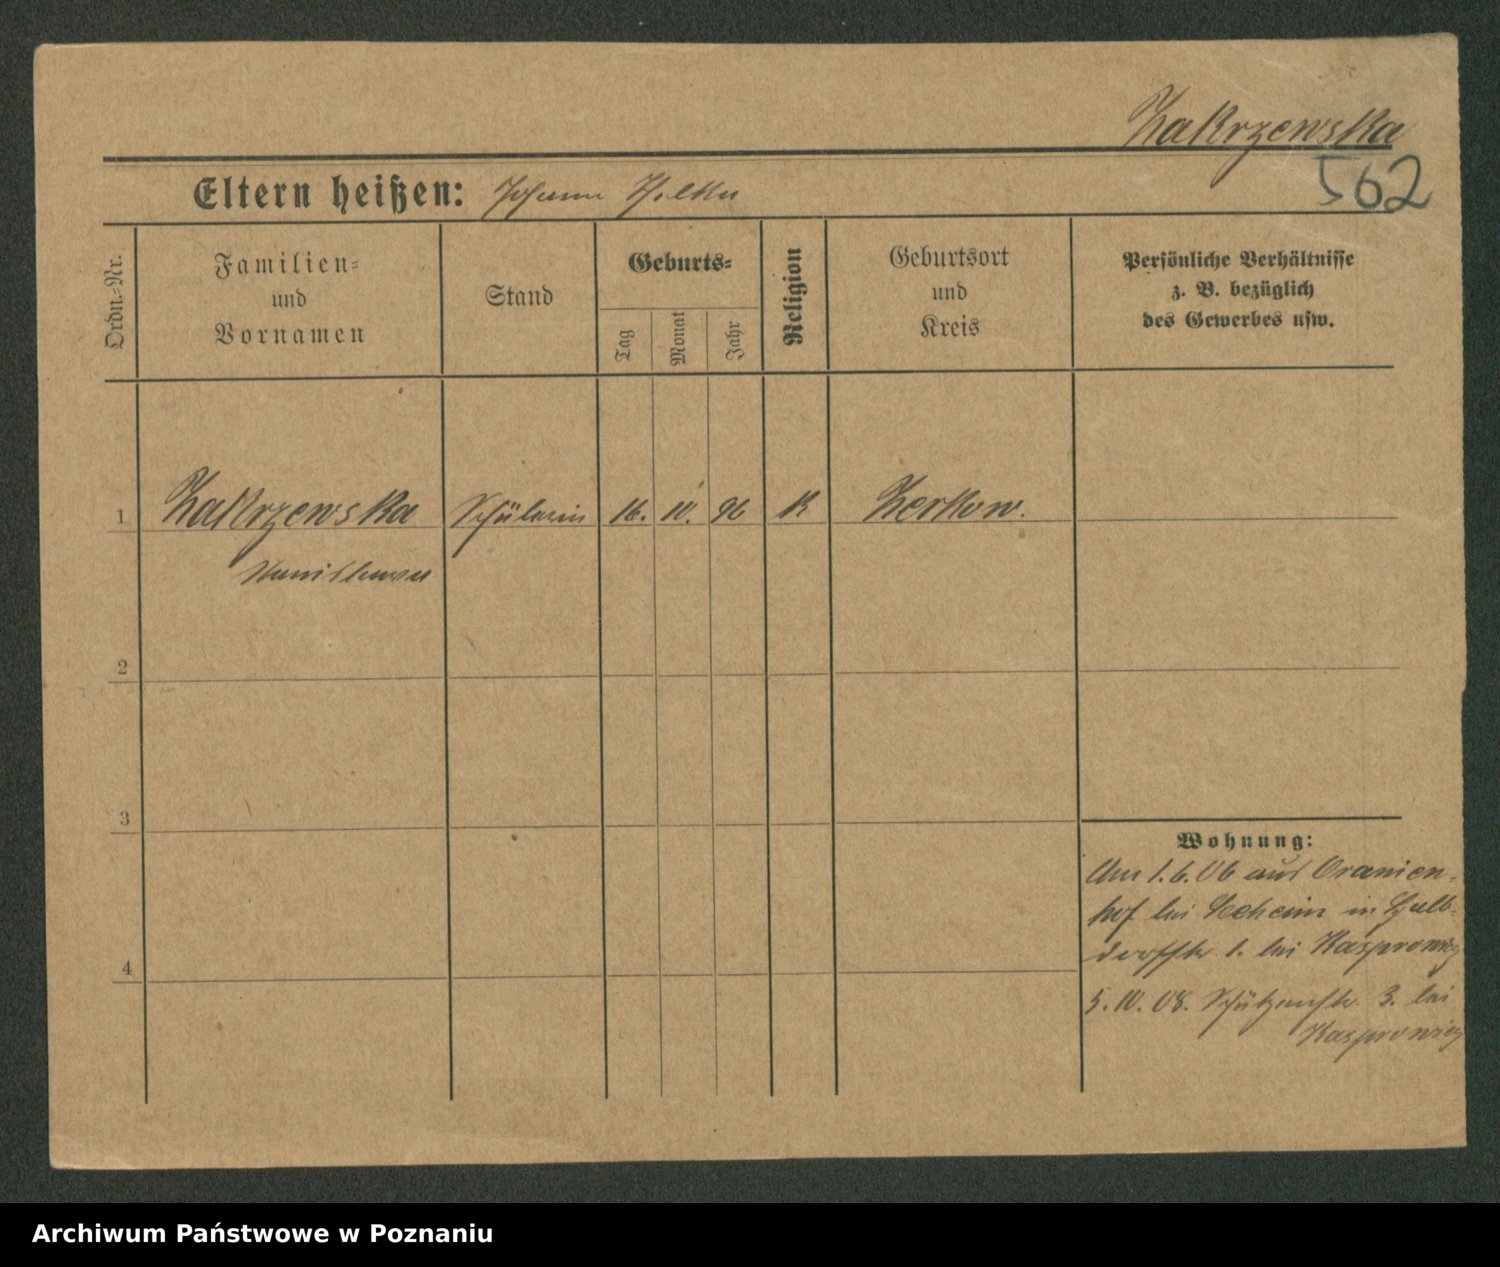 Zakrzewska
562
Eltern heißen: Johann
Ordn.-Nr.
Familien-
und
Vornamen
Stand
Geburts-
Tag
Monat
Jahr
Religion
Geburtsort
und
Kreis
Persönliche Verhältnisse
z. B. bezüglich
des Gewerbes usw.
1 Zakrzewska Schülerin 16. 10. 96 K Zerkow.
Stanislawa
2
3
4
Wohnung:
Am 1.6.06 aus Oranien-
hof bei Seeheim in Halb-
dorfstr. 1. bei Kasprowicz
5.10.08. Schützenstr. 3. bei
Kasprowicz
Archiwum Państwowe w Poznaniu